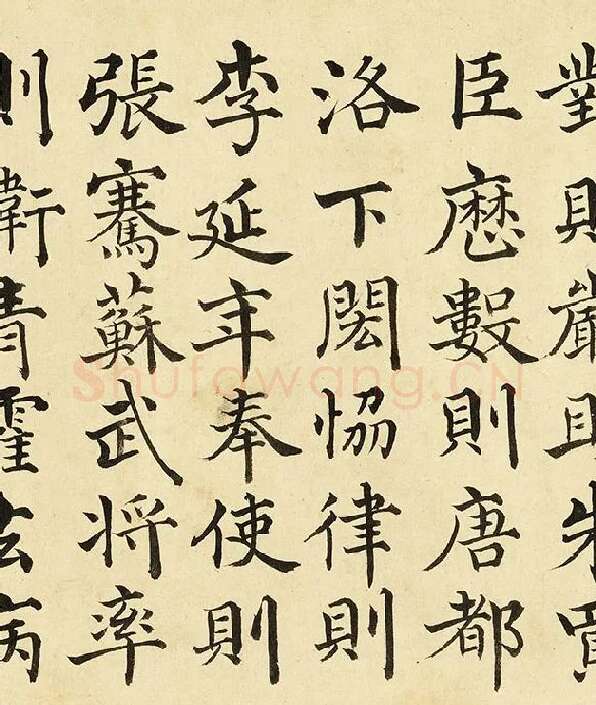 對則嚴助朱買
臣歷數則唐都
洛下閎恊律則
李延年奉使則
張騫蘇武将率
則衛青霍去病
Shufawang.CN